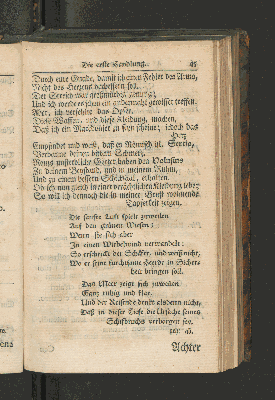 Die erste Handlung. 45
Durch eure Gnade, damit ich einen Fehler des Arms,
Nicht des Herzens verbessern soll.
Der Streich war
Und ich werde es schon ein andermahl gewisser treffen.
Wer, ich verschütze das Opfer.
Diese Waffen, und diese Kleidung, machen,
Daß ich ein Mazedonier zu seyn scheine; jedoch das
Herz
Empfindet und weiß, daß es Römisch ist. Servia,
Verbanne deinen bittern Schmerz.
Roms unsterbliche Götter haben den Volusius
Zu deinem Beystand, und zu meinem Ruhm,
Und zu einem bessern Schicksaal, erhalten.
Ob ich nun gleich in einer verächtlichen Kleidung lebe;
So will ich dennoch die in meiner Brust wohnende
Tapferkeit zeigen.
Die sanfte Luft spielt zuweilen
Auf den grünen Wiesen;
Wenn sie sich aber
In einen Wirbelwind verwandelt:
So erschrickt der Schäfer, und weiß nicht,
Wo er seine furchtsame Heerde in Sicher-
heit bringen soll.
Das Meer zeigt sich zuweilen
Ganz ruhig und klar.
Und der Reisende denkt alsdann nicht,
Daß in dieser Tiefe die Ursache seines
Schifbruchs verborgen sey.
geh. ab.
Achter